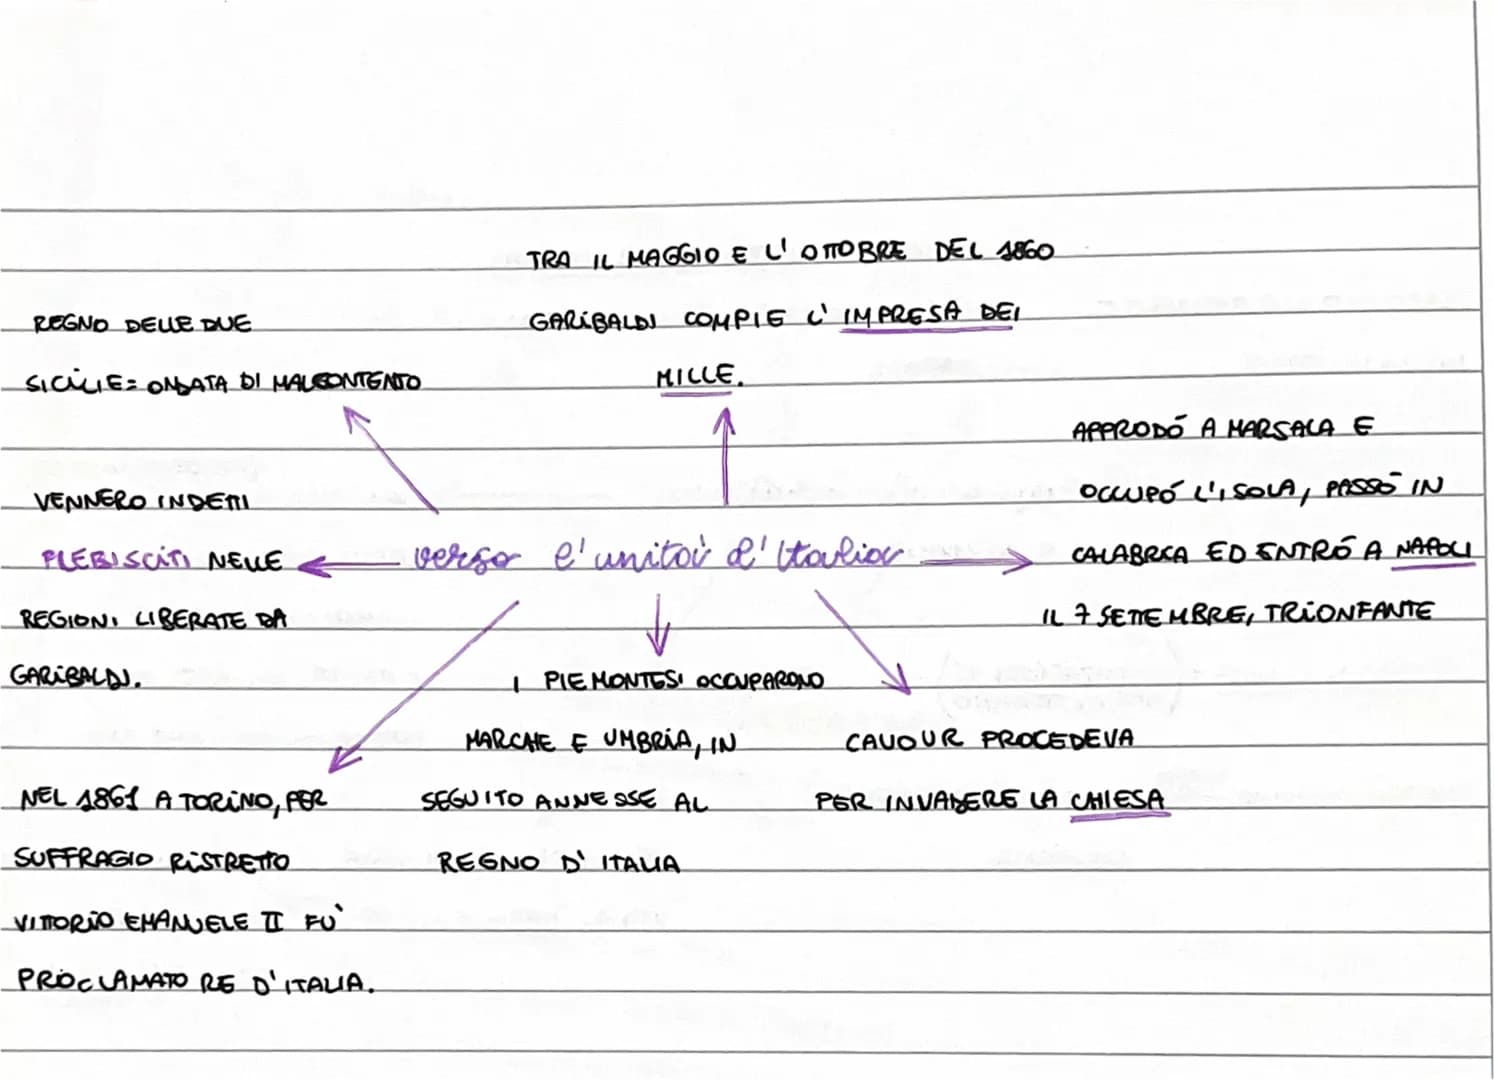 TRA IL MAGGIO E L' OTTOBRE DEL 1860
GARIBALDI COMPIE L' IMPRESA DEI
MILLE.
REGNO DELLE DUE
SICILIE= ONDATA DI MALCONTENTO
APPRODÓ A MARSALA E
OCCUPÓ L'ISOLA, PASSÓ IN
CALABRIA ED ENTRÓ A NAPOLI
IL 7 SETTEMBRE, TRIONFANTE
VENNERO INDETTI
PLEBISCITI NELLE
REGIONI LIBERATE DA
GARIBALDI.
verso l'unità d'Italia
I PIEMONTESI OCCUPARONO
MARCHE E UMBRIA, IN
SEGUITO ANNESSE AL
REGNO D' ITALIA
CAVOUR PROCEDEVA
PER INVADERE LA CHIESA
NEL 1861 A TORINO, PER
SUFFRAGIO RISTRETTO
VITTORIO EMANUELE II FU'
PROCLAMATO RE D'ITALIA.